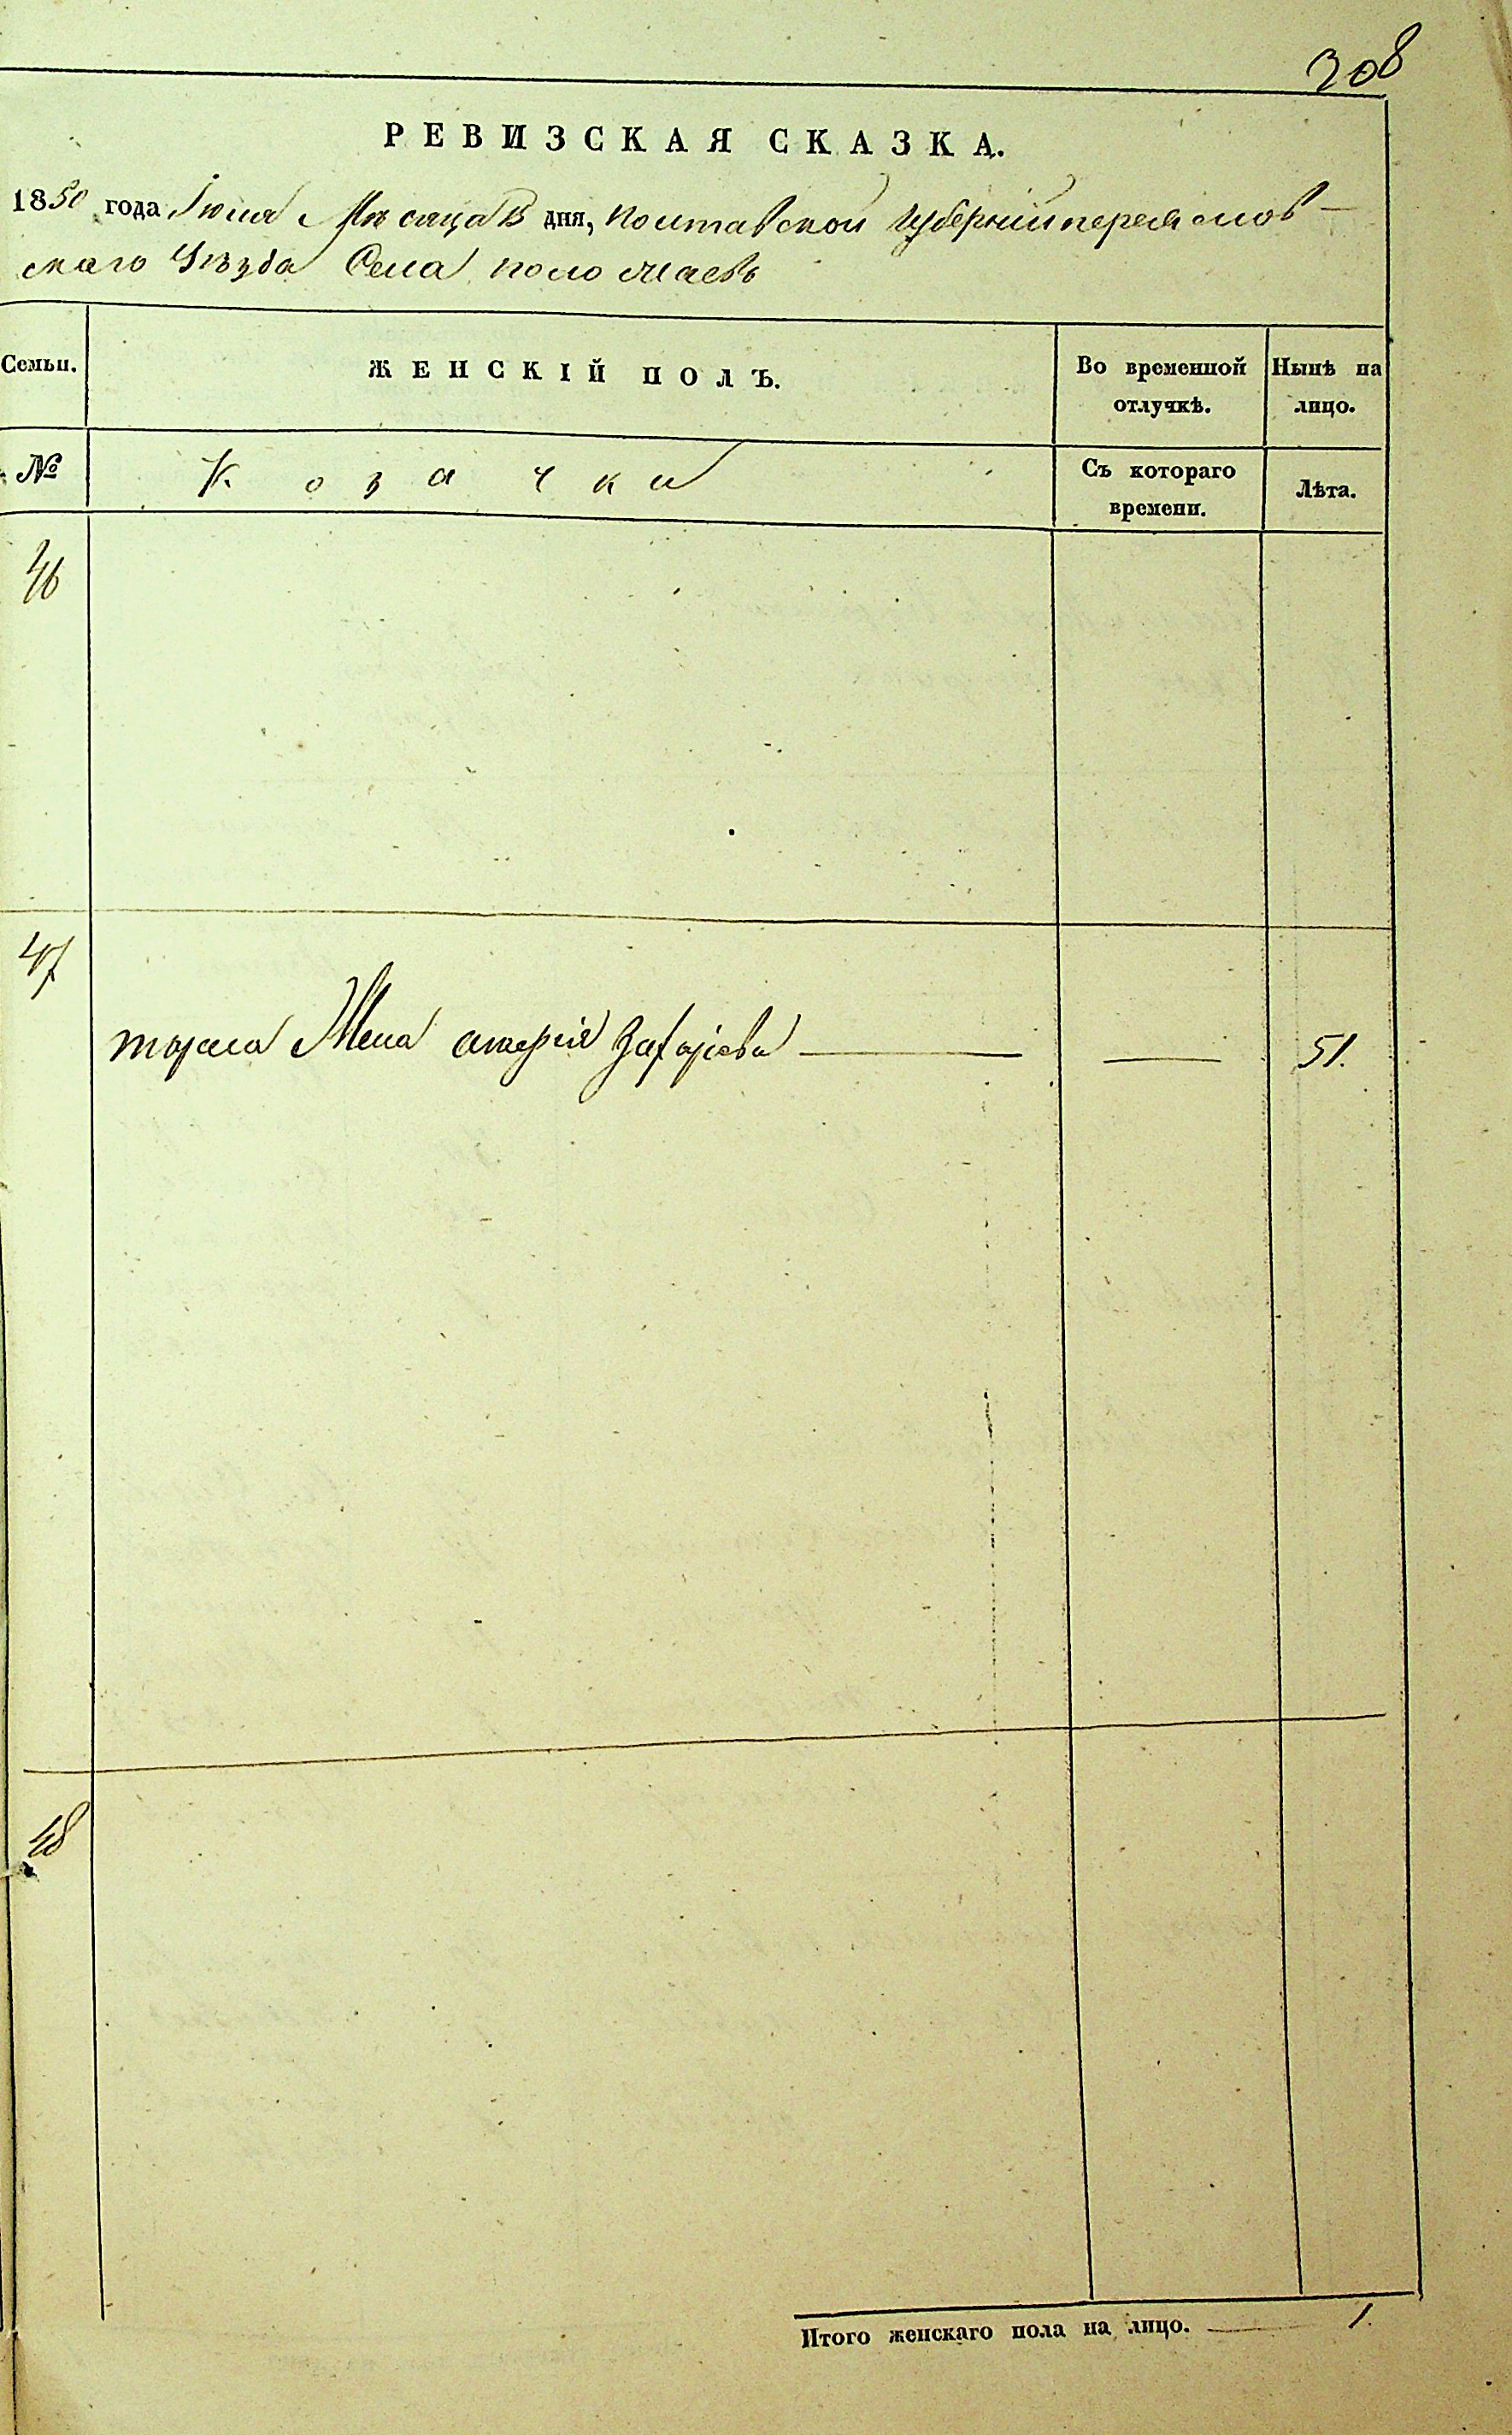 308
РЕВИЗСКАЯ СКАЗКА.
1850 года Іюля Мѣсяца 13 дня, полтавской губерніи переяслов-
скаго Уѣзда Села поло
Семьи.
ЖЕНСКІЙ ПОЛЪ.
Во временной отлучкѣ.
Нынѣ на лицо.
№
Козачки
Съ котораго времени.
Лѣта.
46
47
тараса Жена Захарiева — — 51.
48
Итого женскаго пола на лицо. — 1.